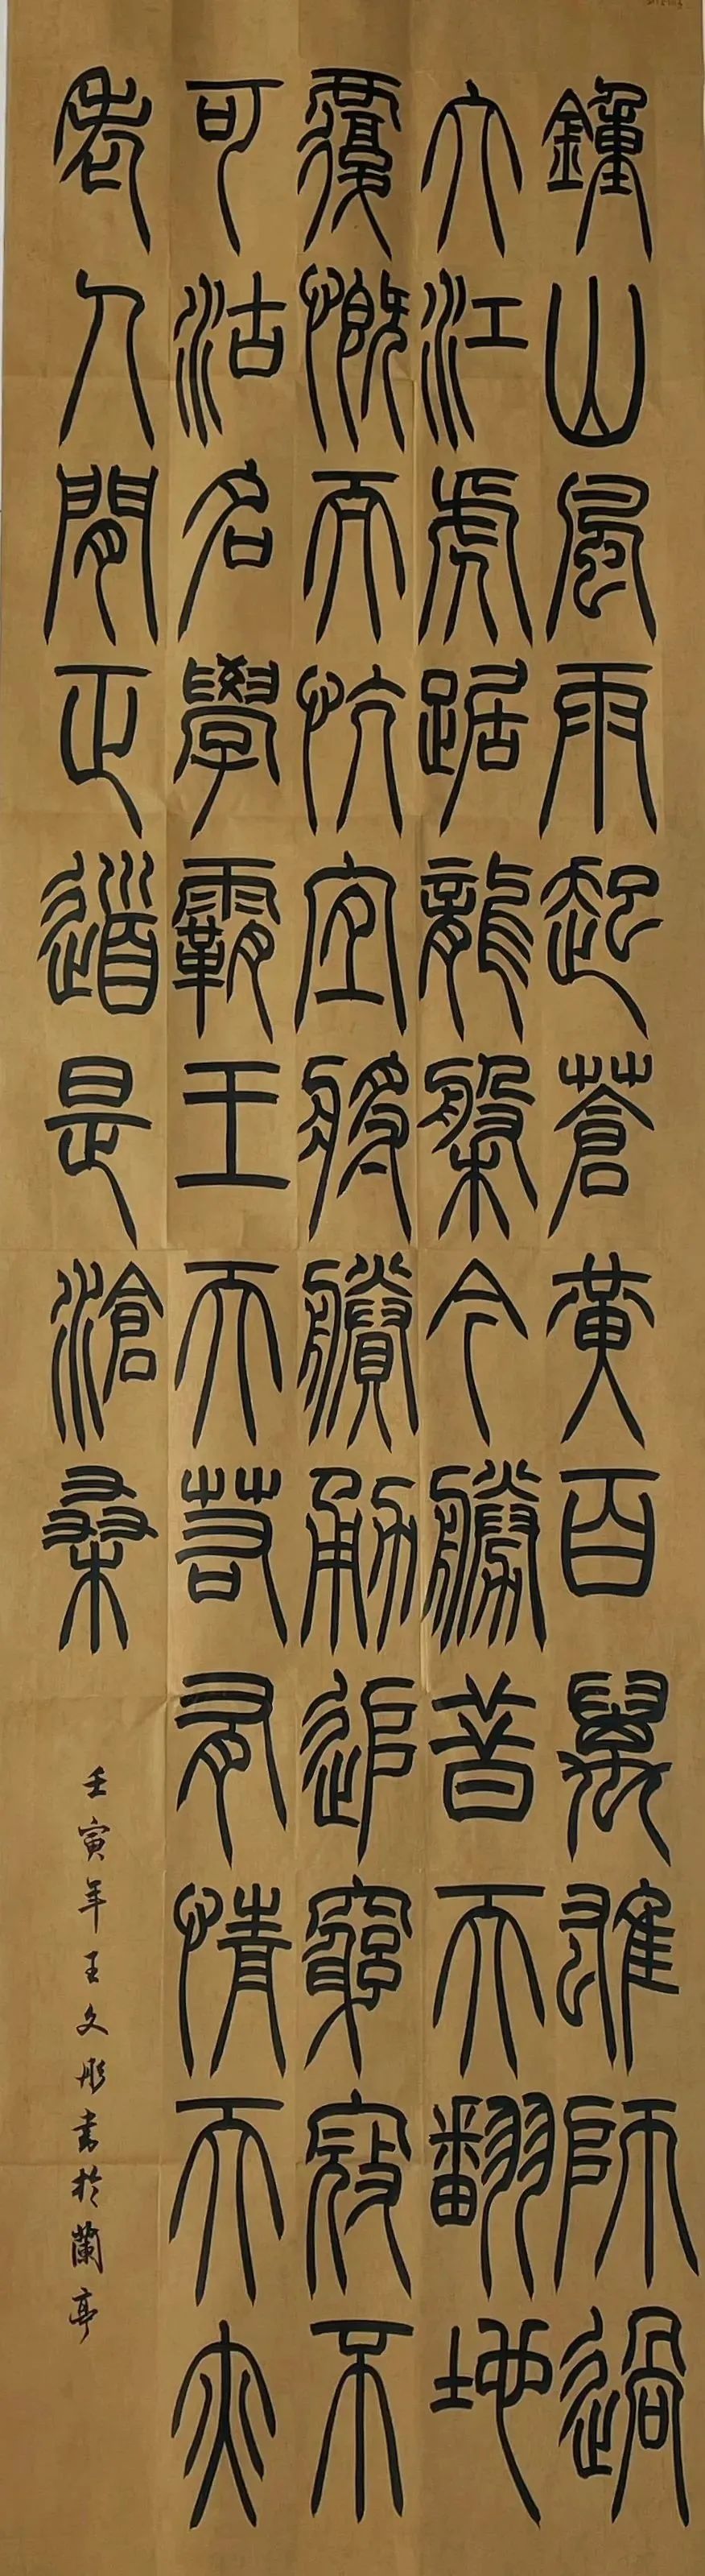 鍾山風雨起蒼黃百萬雄師過
大江虎踞龍槃今勝昔天翻地
覆慨而忼宜將賸勇追窮寇不
可沽名學霸王天若有情天亦
老人間正道是滄桑
壬寅年王文彤書於蘭亭